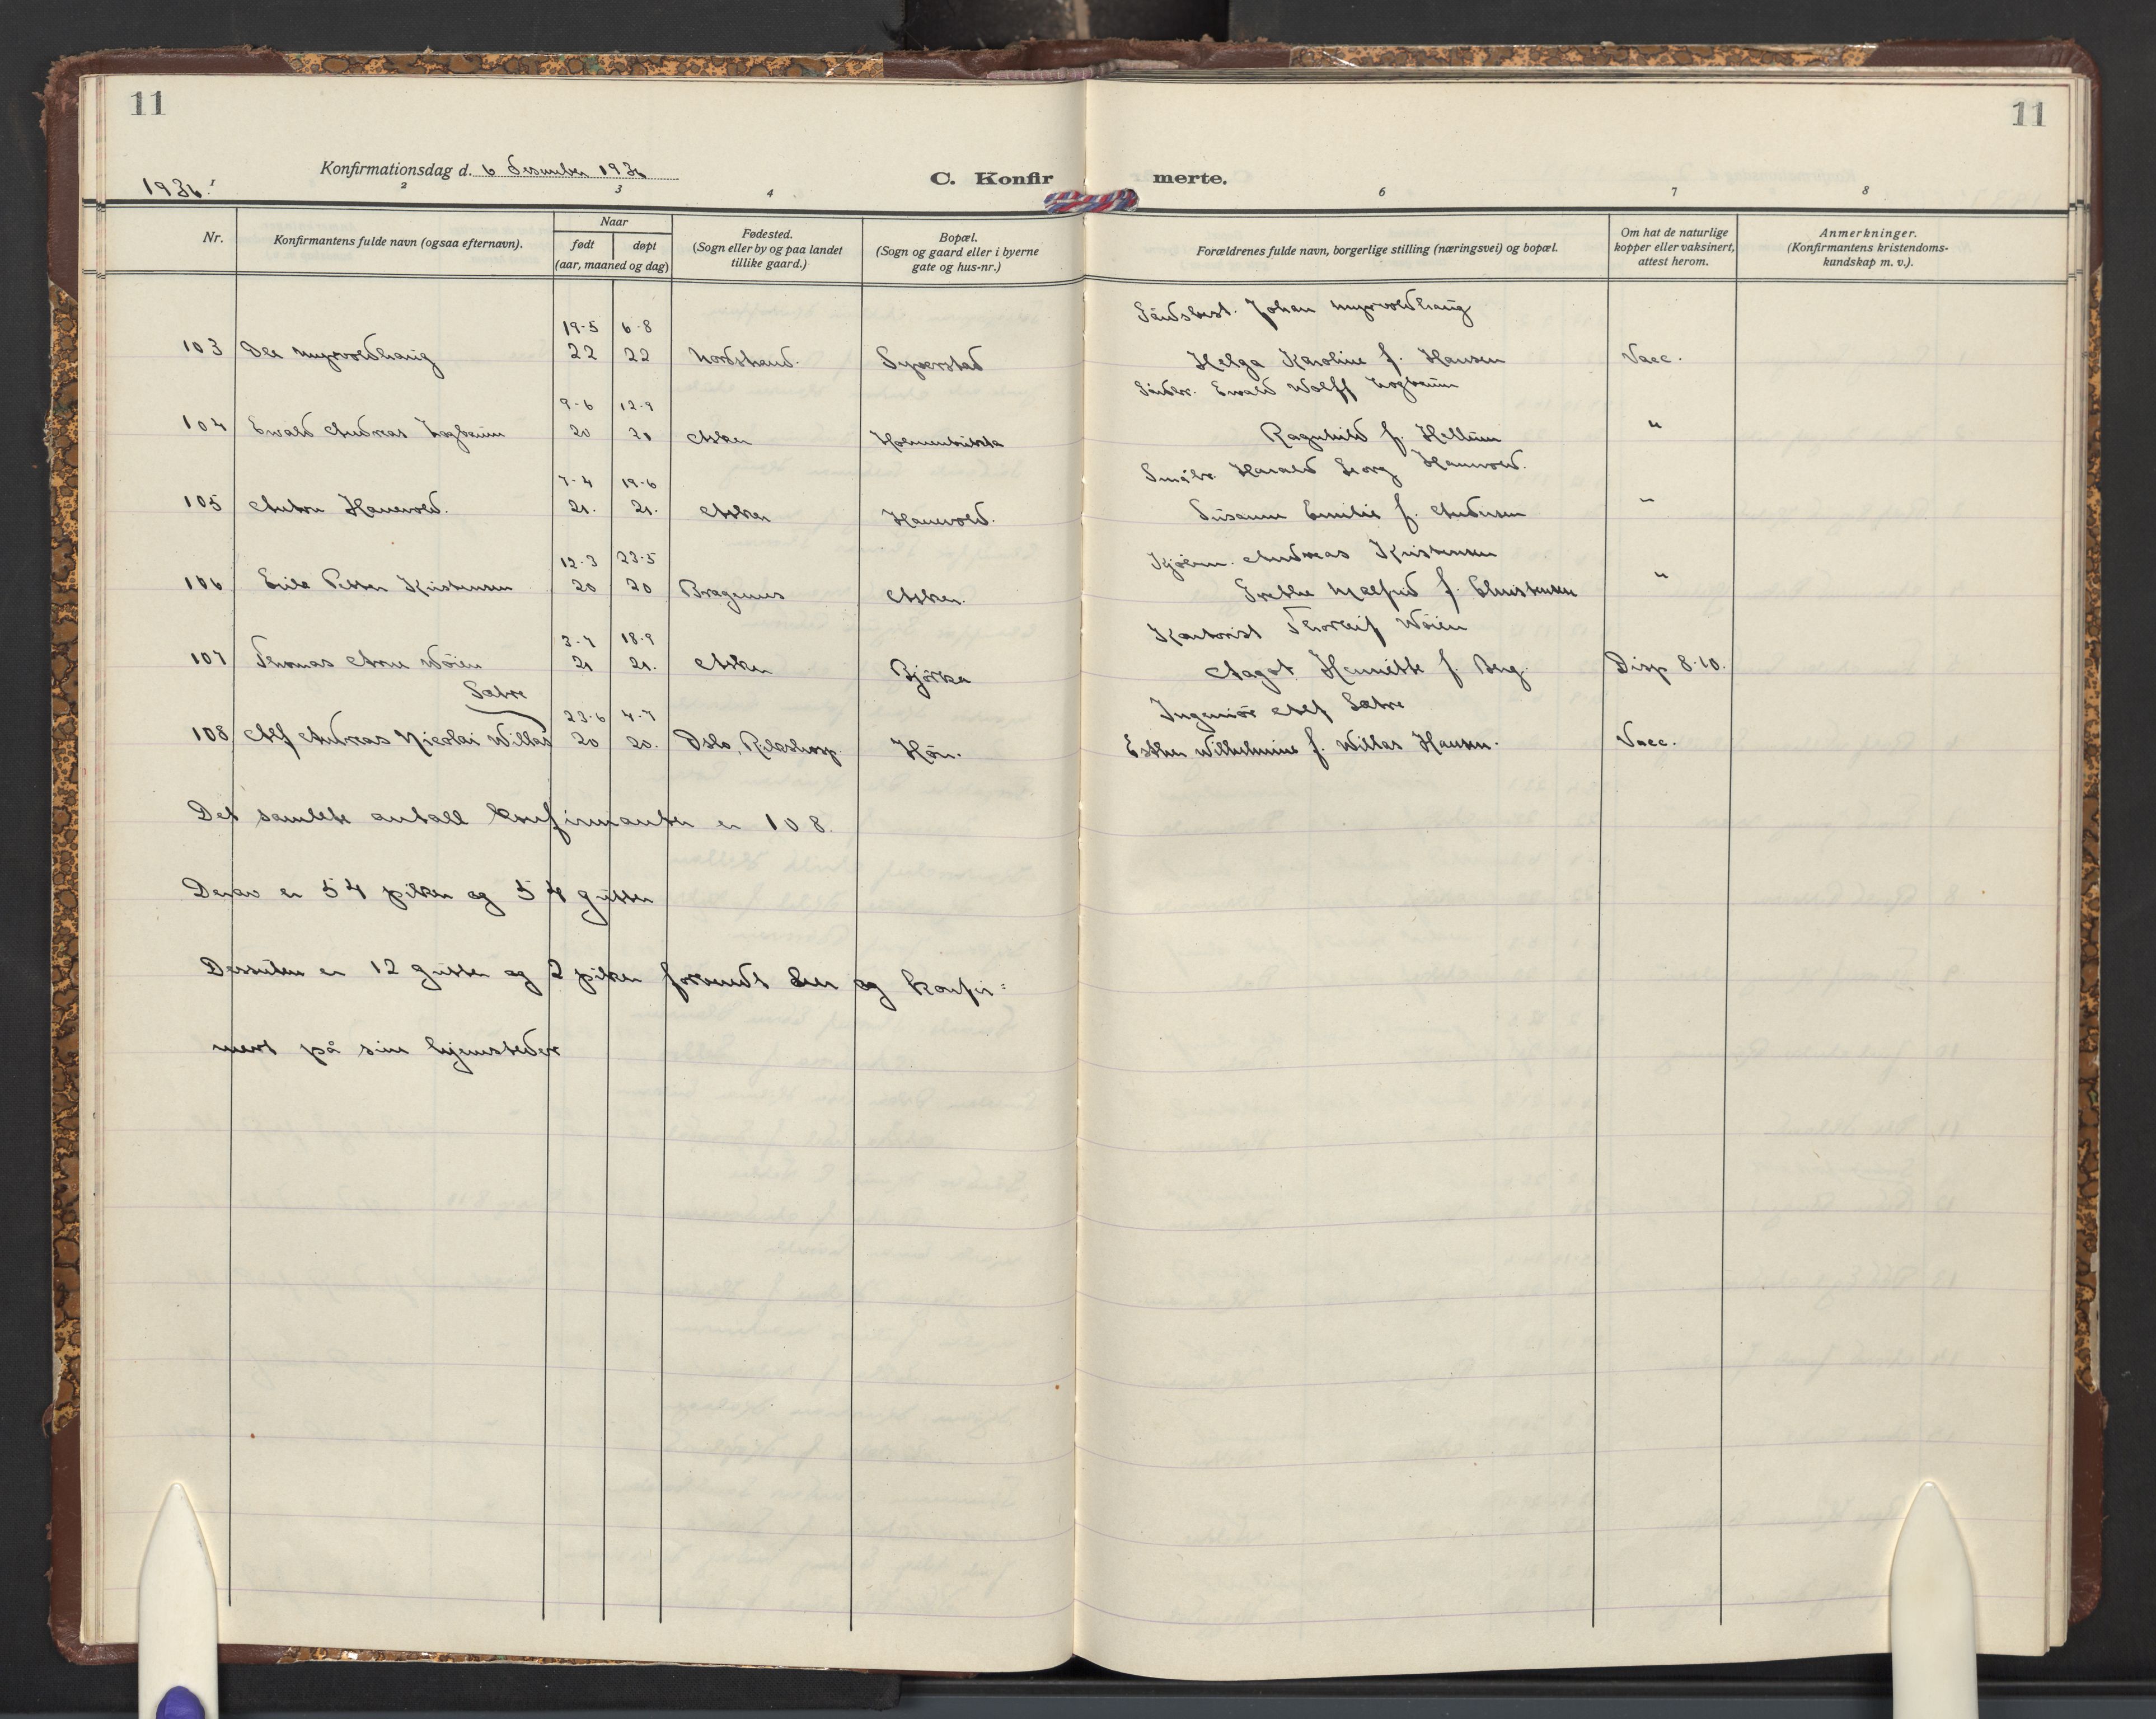 11
11
1936.
Konfirmationsdag d. 6 desember 1936
C. Konfirmerte.
2 3 4 6 7 8
Nr.
Konfirmantens fulde navn (ogsaa efternavn).
Naar
født døpt
(aar, maaned og dag)
Fødested.
(Sogn eller by og paa landet
tillike gaard.)
Bopæl.
(Sogn og gaard eller i byerne
gate og hus-nr.)
Forældrenes fulde navn, borgerlige stilling (næringsvei) og bopæl.
Om hat de naturlige
kopper eller vaksinert,
attest herom.
Anmerkninger.
(Konfirmantens kristendoms-
kundskap m. v.).
19-5 6-8 Johan Myrvoldhaug
103 Ole Myrvoldhaug 22 22 Nordstrand. Syverstad Helga Karoline f. Hansen Vacc.
9-6 12-9 Ewald Wolff Logbaum
104 Ewald Andreas Logbaum 20 20 Asker Ragnhild f. Hellum "
7-4 19-6 Småbr. Harald Georg Hanevold.
105 Anton Hanevold. 21. 21. Asker Hanevold. Susanne Emilie f. Andersen "
12-3 23-5 Kjøbm. Andreas Kristensen
106 Petter Kristensen 20 20 Bragernes Asker. Grethe Malfrid f. Christensen "
3-7 18-9 Kontorist Thorleif Wøien
107 Thomas Arne Wøien 21 21. Asker Bjørka Aagot Henriette f. Berg. Disp 8.10.
Sætre 23-6 4-7 Ingeniør Alf Sætre
108 Alf Andreas Nicolai Willas 20 20. Oslo, Rikshosp. Høn. Esther Wilhelmine f. Willas Hansen. Vacc.
Det samlete antall konfirmanter er 108.
Derav er 54 piker og 54 gutter
Dessuten er 12 gutter og 2 piker forberedt her og konfir=
mert på sine hjemsteder